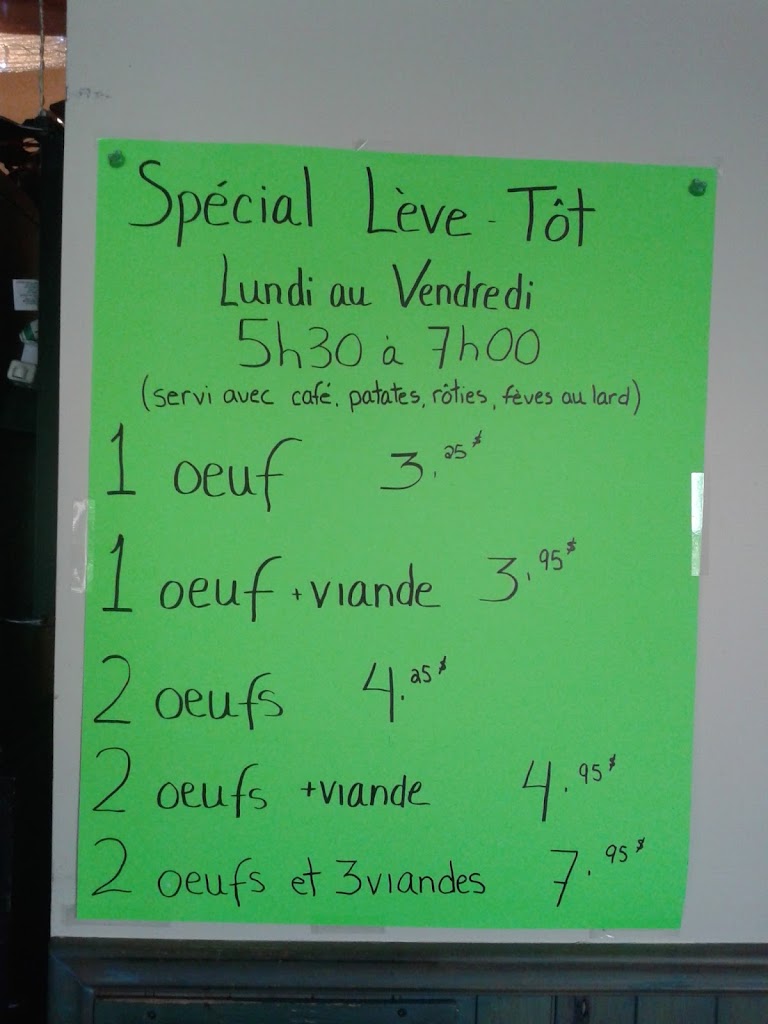 Spécial Lève-Tôt
Lundi au Vendredi
5h30 à 7h00
(servi avec café, patates, rôties, fèves au lard)
1 oeuf 3.25$
1 oeuf +viande 3.95$
2 oeufs 4.25$
2 oeufs +viande 4.95$
2 oeufs et 3 viandes 7.95$